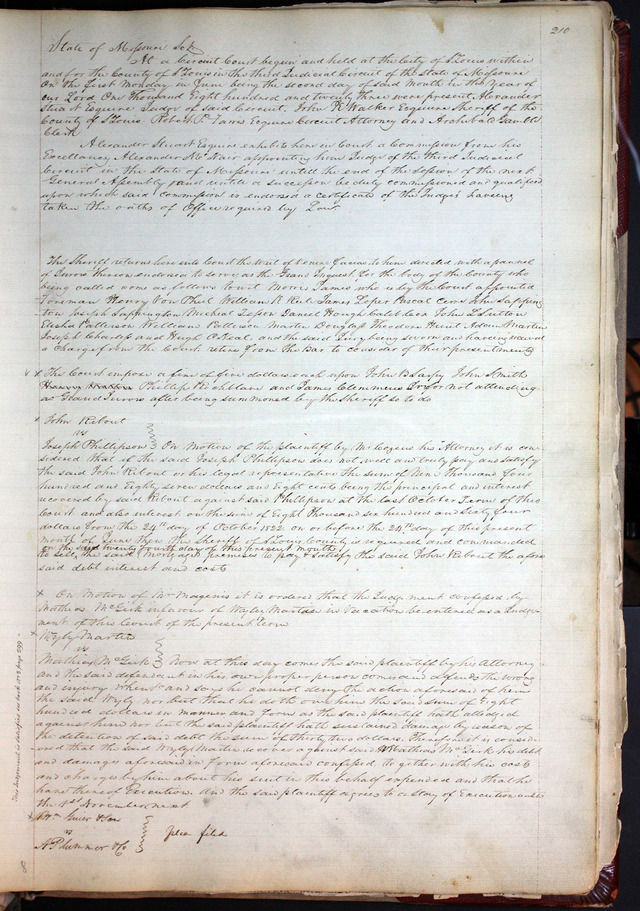 210
State of Missouri Sct
At a Circuit Court begun and held at the City of St Louis within
and for the County of St Louis in the third Judicial Circuit of the State of Missouri
On the first Monday in June being the second day of said Month in the Year of
our Lord One thousand Eight hundred and twenty three were present Alexander
Stuart Esquire Judge of said Circuit. John K Walker Esquire Sheriff of the
County of St Louis Robert P. Farris Esquire Circuit Attorney and Archibald Gamble
Clerk
Alexander Stuart Esquire exhibits here in Court a Commission from his
Excellency Alexander McNair appointing him Judge of the third Judicial
Circuit in the State of Missouri untill the end of the Session of the next
General Assembly and untill a successor be duly commissioned and qualified
upon which said commission is endorsed a certificate of the Judge's having
taken the oaths of Office required by Law
The Sheriff returns here into Court the writ of to him directed with a pannel
of Jurors thereon endorsed to serve as the Grand Inquest for the body of the County who
being called come as follows towit who is by the Court appointed
Foreman Henry Von Phul William R James Pascal Cerre John Sappin
ton Joseph Sappington Micheal Daniel Hough Caleb John L Sutton
Elisha Patterson William Patterson Martin Douglass Theodore Hunt Adam Martin
Joseph Charless and Hugh O'Neal, and the said Jury being sworn and having received
a Charge from the Court retire from the Bar to consider of their presentments
x The Court impose a fine of five dollars each upon John B Sarpy John Smith
Phillip Rochblave and James Clemmens Jr for not attending
as Grand Jurors after being summoned by the Sheriff so to do
x John Ribout
vs
Joseph Phillipson On Motion of the plaintiff by Mr Cozens his Attorney it is con-
sidered that if the said Joseph Phillipson does not well and truly pay and satisfy
the said John Ribout or his legal representatives the sum of Nine Thousand four
hundred and Eighty seven dollars and Eight cents being the principal and interest
recovered by said Ribout against said Phillipson at the last October Term of this
Court and also interest on the sum of Eight Thousand six hundred and Sixty four
dollars from the 24th day of October 1822 on or before the 24th day of this present
month of June then the Sheriff of St Louis County is required and commanded
on the said twenty fourth day of this present month
to sell the said mortgaged premises to pay & satisfy the said John Ribout the afore
said debt interest and costs
x On Motion of Mr Magenis it is ordered that the Judgement confessed by
Mathias McGirk in favour of Wyly Martin in Vacation be entered as a Judge-
ment of this Court of the present Term
x Wyly Martin
vs
Mathias McGirk Now at this day comes the said plaintiff by his Attorney
and the said defendant in his own proper person comes and defends the wrong
and injury when &c and says he cannot deny the action aforesaid of him
the said Wyly nor but that he doth owe him the said sum of Eight
hundred dollars in manner and form as the said plaintiff hath alledged
against him nor but the said plaintiff hath sustained damage by reason of
the detention of said debt the sum of thirty two dollars. Therefore it is consid-
ered that the said Wyly Martin recover against said Mathias McGirk his debt
and damages aforesaid in form aforesaid confessed, together with his costs
and charges by him about his suit in this behalf expended and that he
have thereof Execution. And the said plaintiff agrees to a stay of Execution untill
the 1st November next
x & Son
vs plea filed
& Co
This Judgement is satisfied see book page 299